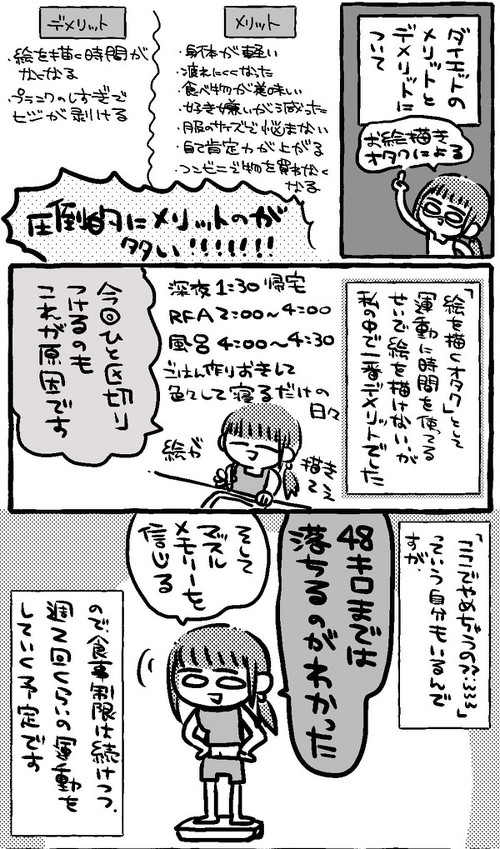 ダイエットの
メリットと
デメリットに
ついて
お絵描き
オタクによる
メリット
・身体が軽い
・疲れにくくなった
・食べ物が美味い
・好き嫌いが減った
・服のサイズで悩まない
・自己肯定力が上がる
・コンビニで物を買わなく
なる
デメリット
・絵を描く時間が
なくなる
・プランクのしすぎで
ヒジが剥ける
圧倒的にメリットのが
タタい!!!!!!!
「絵を描くオタク」として
運動に時間を使ってる
せいで絵を描けない、が
私の中で一番デメリットでした
深夜1:30帰宅
RFA2:00〜4:00
風呂4:00〜4:30
ごはん作りおきして
色々して寝るだけの
日々
絵が
描き
てえ
今回ひと区切り
つけるのも
これが原因です
「ここでやめちゃうの??:::」
っていう自分もいるんで
すが、
48キロまでは
落ちるのがわかった
そして
マッスル
メモリーを
信じる
ので食事制限は続けつつ、
週2回くらいの運動を
していく予定です